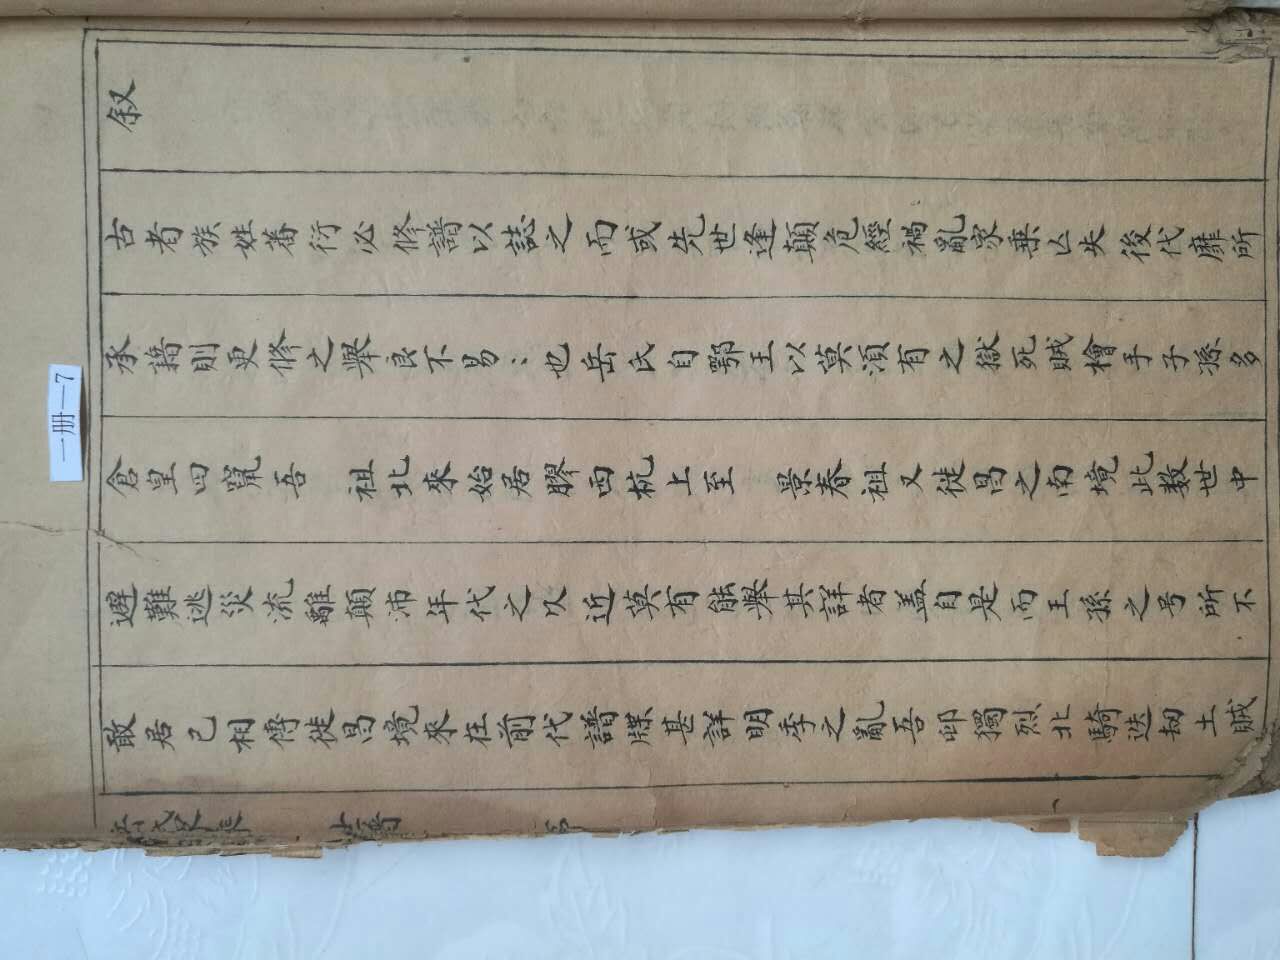 叙
古者族姓蕃衍必修譜以誌之而或先世逢顛危經禍亂家乗亾失後代靡所
承藉則更修之舉良不易〻也岳氏自鄂王以莫須有之獄死賊檜手子孫多
倉皇四竄吾 祖北來始居膠西杭上至 景春祖又徙昌之南境此数世中
避難逃災流離顛沛年代之久近莫有能舉其詳者盖自是而王孫之号所不
敢居已相傳徙昌境來在前代譜牒甚詳明季之亂吾邮獨烈北騎迭刼土賊
岳氏 譜
一册—7